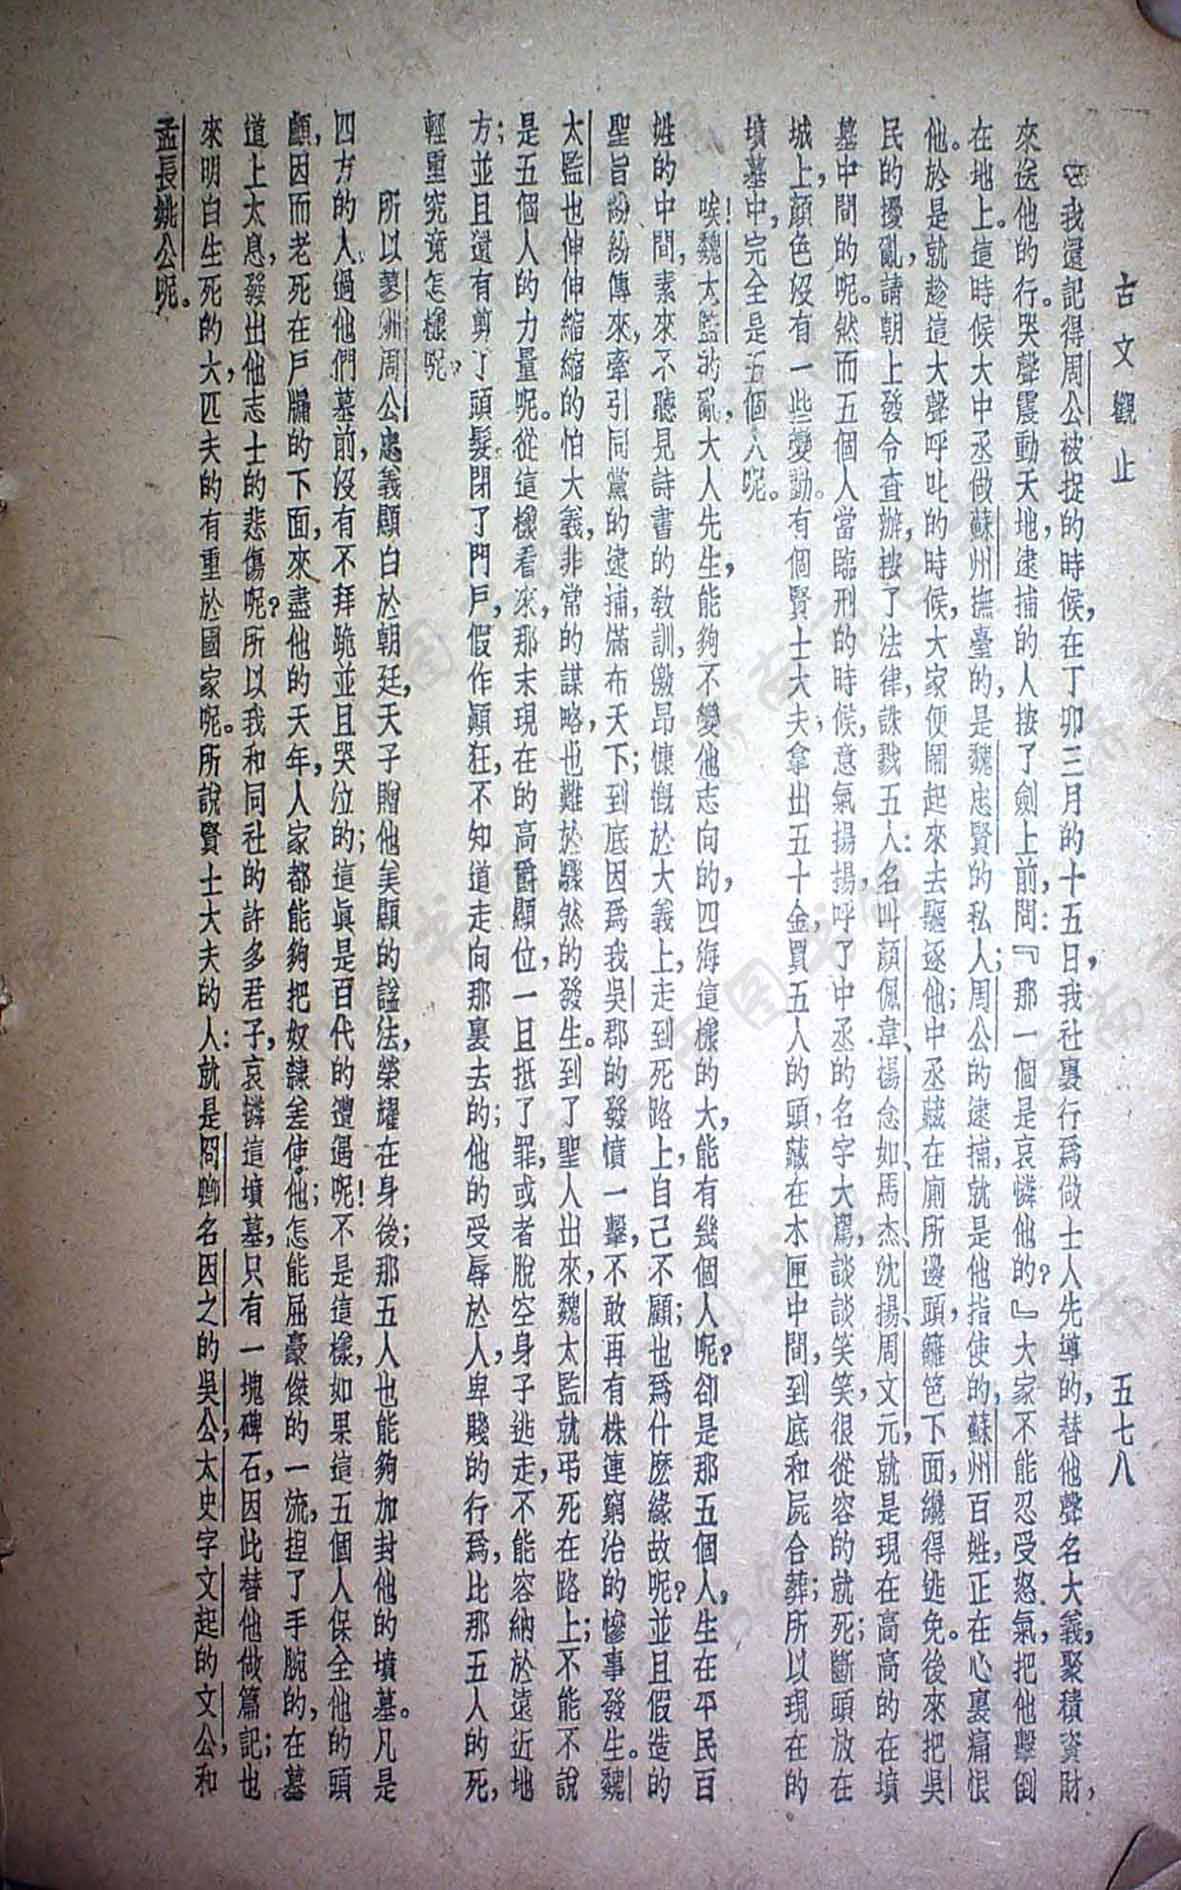 古文觀止 五七八
我還記得周公被捉的時候,在丁卯三月的十五日,我社裏行爲做士人先導的,替他聲名大義,聚積資財,
來送他的行。哭聲震動天地,逮捕的人按了劍上前,問:『那一個是哀憐他的?』大家不能忍受怒氣,把他擊倒
在地上。這時候大中丞做蘇州撫臺的,是魏忠賢的私人;周公的逮捕,就是他指使的,蘇州百姓,正在心裏痛恨
他。於是就趁這大聲呼叱的時候,大家便鬧起來去驅逐他;中丞藏在廁所邊頭,籬笆下面,纔得逃免。後來把吳
民的擾亂,請朝上發令查辦,按了法律,誅戮五人:名叫顏佩韋、楊念如、馬杰、沈揚、周文元,就是現在高高的在墳
墓中間的呢。然而五個人當臨刑的時候,意氣揚揚,呼了中丞的名字大罵,談談笑笑,很從容的就死;斷頭放在
城上,顏色沒有一些變動。有個賢士大夫,拿出五十金,買五人的頭,藏在木匣中間,到底和屍合葬;所以現在的
墳墓中,完全是五個人呢。
唉!魏太監的亂,大人先生,能夠不變他志向的,四海這樣的大,能有幾個人呢?卻是那五個人,生在平民百
姓的中間,素來不聽見詩書的敎訓,激昂慷慨於大義上,走到死路上,自己不顧;也爲什麽緣故呢?並且假造的
聖旨紛紛傳來,牽引同黨的逮捕,滿布天下;到底因爲我吳郡的發憤一擊,不敢再有株連窮治的慘事發生。魏
太監也伸伸縮縮的怕大義,非常的謀略,也難於驟然的發生。到了聖人出來,魏太監就弔死在路上;不能不說
是五個人的力量呢。從這樣看來,那末現在的高爵顯位,一旦抵了罪,或者脫空身子逃走,不能容納於遠近地
方;並且還有剪了頭髮,閉了門戶,假作顚狂,不知道走向那裏去的;他的受辱於人,卑賤的行爲,比那五人的死,
輕重究竟怎樣呢?
所以蓼洲周公,忠義顯白於朝廷,天子贈他美顯的諡法,榮耀在身後;那五人也能夠加封他的墳墓。凡是
四方的人,過他們墓前,沒有不拜跪並且哭泣的;這眞是百代的遭遇呢!不是這樣,如果這五個人保全他的頭
顱,因而老死在戶牖的下面,來盡他的天年,人家都能夠把奴隸差使他;怎能屈豪傑的一流,揑了手腕的,在墓
道上太息,發出他志士的悲傷呢?所以我和同社的許多君子,哀憐這墳墓,只有一塊碑石,因此替他做篇記;也
來明白生死的大,匹夫的有重於國家呢。所說賢士大夫的人:就是冏卿名因之的吳公,太史字文起的文公,和
孟長姚公呢。